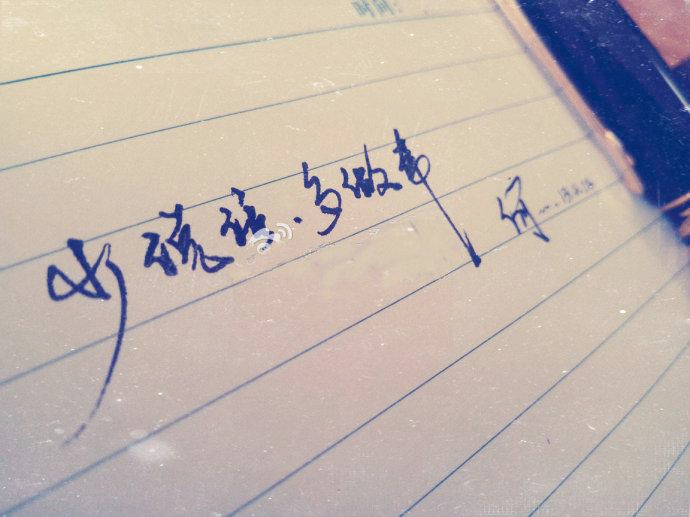 时间:
少说话.多做事
何